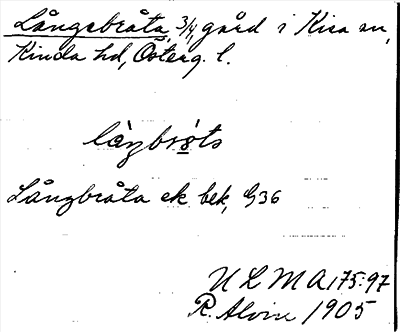 Långsbråta, 3/4, gård i Kisa sn,
Kinda hd, Österg. l.
Långbråta ek bek, G36
ULMA 175:97
R. Alvin 1905